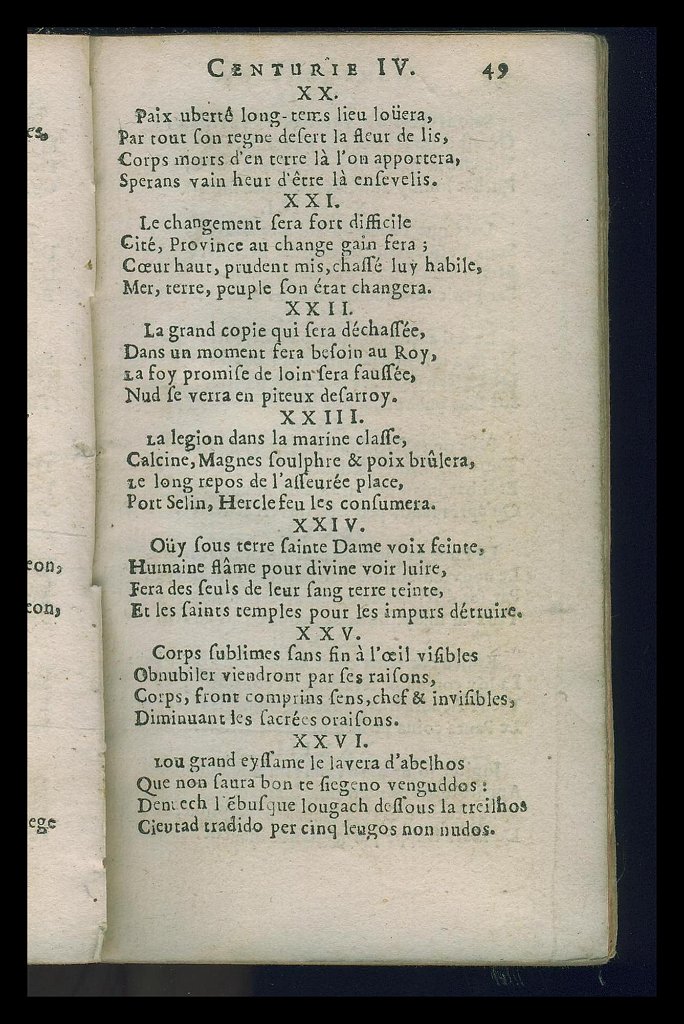 es,
CENTURIE IV. 49
XX.
Paix uberté long-tems lieu loüera,
Par tout ſon regne deſert la fleur de lis,
Corps morts d'en terre là l'on apportera,
Sperans vain heur d'être là enſevelis.
XXI.
Le changement ſera fort difficile
Cité, Province au change gain fera ;
Cœur haut, prudent mis, chaſſé luy habile,
Mer, terre, peuple ſon état changera.
XXII.
La grand copie qui ſera déchaſſée,
Dans un moment fera beſoin au Roy,
La foy promiſe de loin ſera fauſſée,
Nud ſe verra en piteux deſarroy.
XXIII.
La legion dans la marine claſſe,
Calcine, Magnes ſoulphre & poix brûlera,
Le long repos de l'aſſeurée place,
Port Selin, Hercle feu les conſumera.
XXIV.
Oüy ſous terre ſainte Dame voix feinte,
Humaine flâme pour divine voir luire,
Fera des ſeuls de leur ſang terre teinte,
Et les ſaints temples pour les impurs détruire.
XXV.
Corps ſublimes ſans fin à l'œil viſibles
Obnubiler viendront par ſes raiſons,
Corps, front comprins ſens, chef & inviſibles,
Diminuant les ſacrées oraiſons.
XXVI.
Lou grand eyſſame le lavera d'abelhos
Que non ſaura bon te ſiegeno venguddos :
Denech l'ēbuſque lougach deſſous la treilhos
Cieutad tradido per cinq leugos non nudos.
eon,
eon,
ege